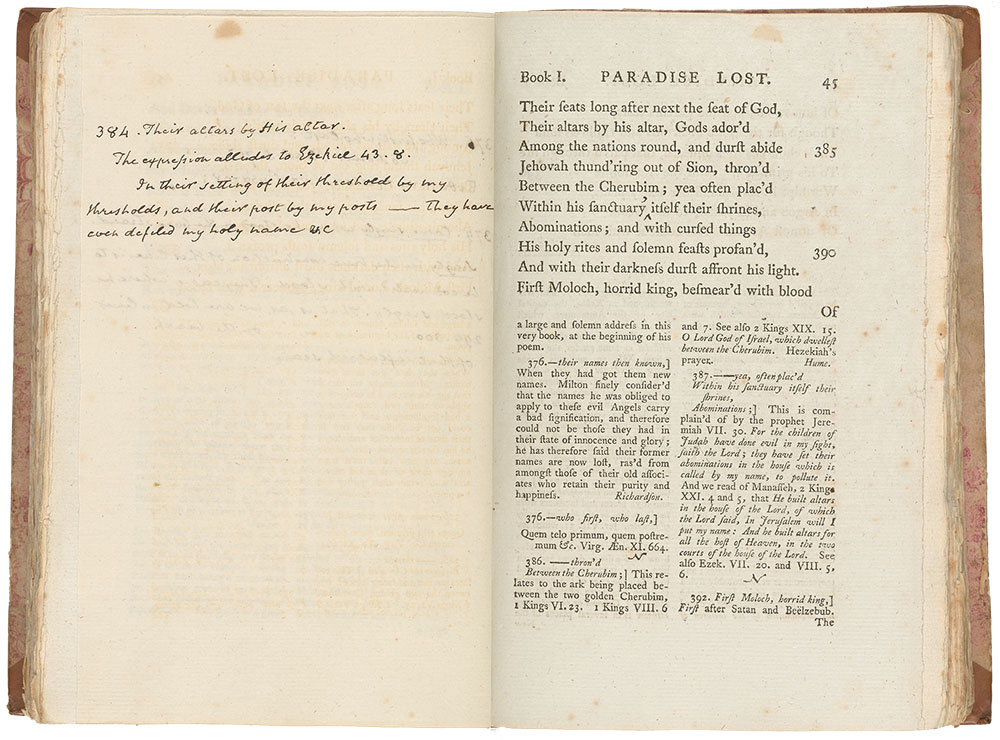 384. Their altars by His altar.
The expreſsion alludes to Ezekiel 43. 8.
In their setting of their threshold by my
thresholds, and their post by my posts — They have
even defiled my holy name &c
Book I. PARADISE LOST. 45
Their ſeats long after next the ſeat of God,
Their altars by his altar, Gods ador'd
Among the nations round, and durſt abide 385
Jehovah thund'ring out of Sion, thron'd
Between the Cherubim; yea often plac'd
Within his ſanctuary, itſelf their ſhrines,
Abominations; and with curſed things
His holy rites and ſolemn feaſts profan'd, 390
And with their darkneſs durſt affront his light.
Firſt Moloch, horrid king, beſmear'd with blood
Of
a large and ſolemn addreſs in this
very book, at the beginning of his
poem.
376.—their names then known,]
When they had got them new
names. Milton finely conſider'd
that the names he was obliged to
apply to theſe evil Angels carry
a bad ſignification, and therefore
could not be thoſe they had in
their ſtate of innocence and glory;
he has therefore ſaid their former
names are now loſt, ras'd from
amongſt thoſe of their old aſſoci-
ates who retain their purity and
happineſs. Richardſon.
376.—who firſt, who laſt,]
Quem telo primum, quem poſtre-
mum &c. Virg. Æn. XI. 664.
N
386. —thron'd
Between the Cherubim;] This re-
lates to the ark being placed be-
tween the two golden Cherubim,
1 Kings VI. 23. 1 Kings VIII. 6
and 7. See alſo 2 Kings XIX. 15.
O Lord God of Iſrael, which dwelleſt
between the Cherubim. Hezekiah's
prayer. Hume.
387.—yea, often plac'd
Within his ſanctuary itſelf their
ſhrines,
Abominations;] This is com-
plain'd of by the prophet Jere-
miah VII. 30. For the children of
Judah have done evil in my ſight,
ſaith the Lord; they have ſet their
abominations in the houſe which is
called by my name, to pollute it.
And we read of Manaſſeh, 2 Kings
XXI. 4 and 5, that He built altars
in the houſe of the Lord, of which
the Lord ſaid, In Jeruſalem will I
put my name: And he built altars for
all the hoſt of Heaven, in the two
courts of the houſe of the Lord. See
alſo Ezek. VII. 20. and VIII. 5,
6. N
392. Firſt Moloch, horrid king,]
Firſt after Satan and Beëlzebub.
The